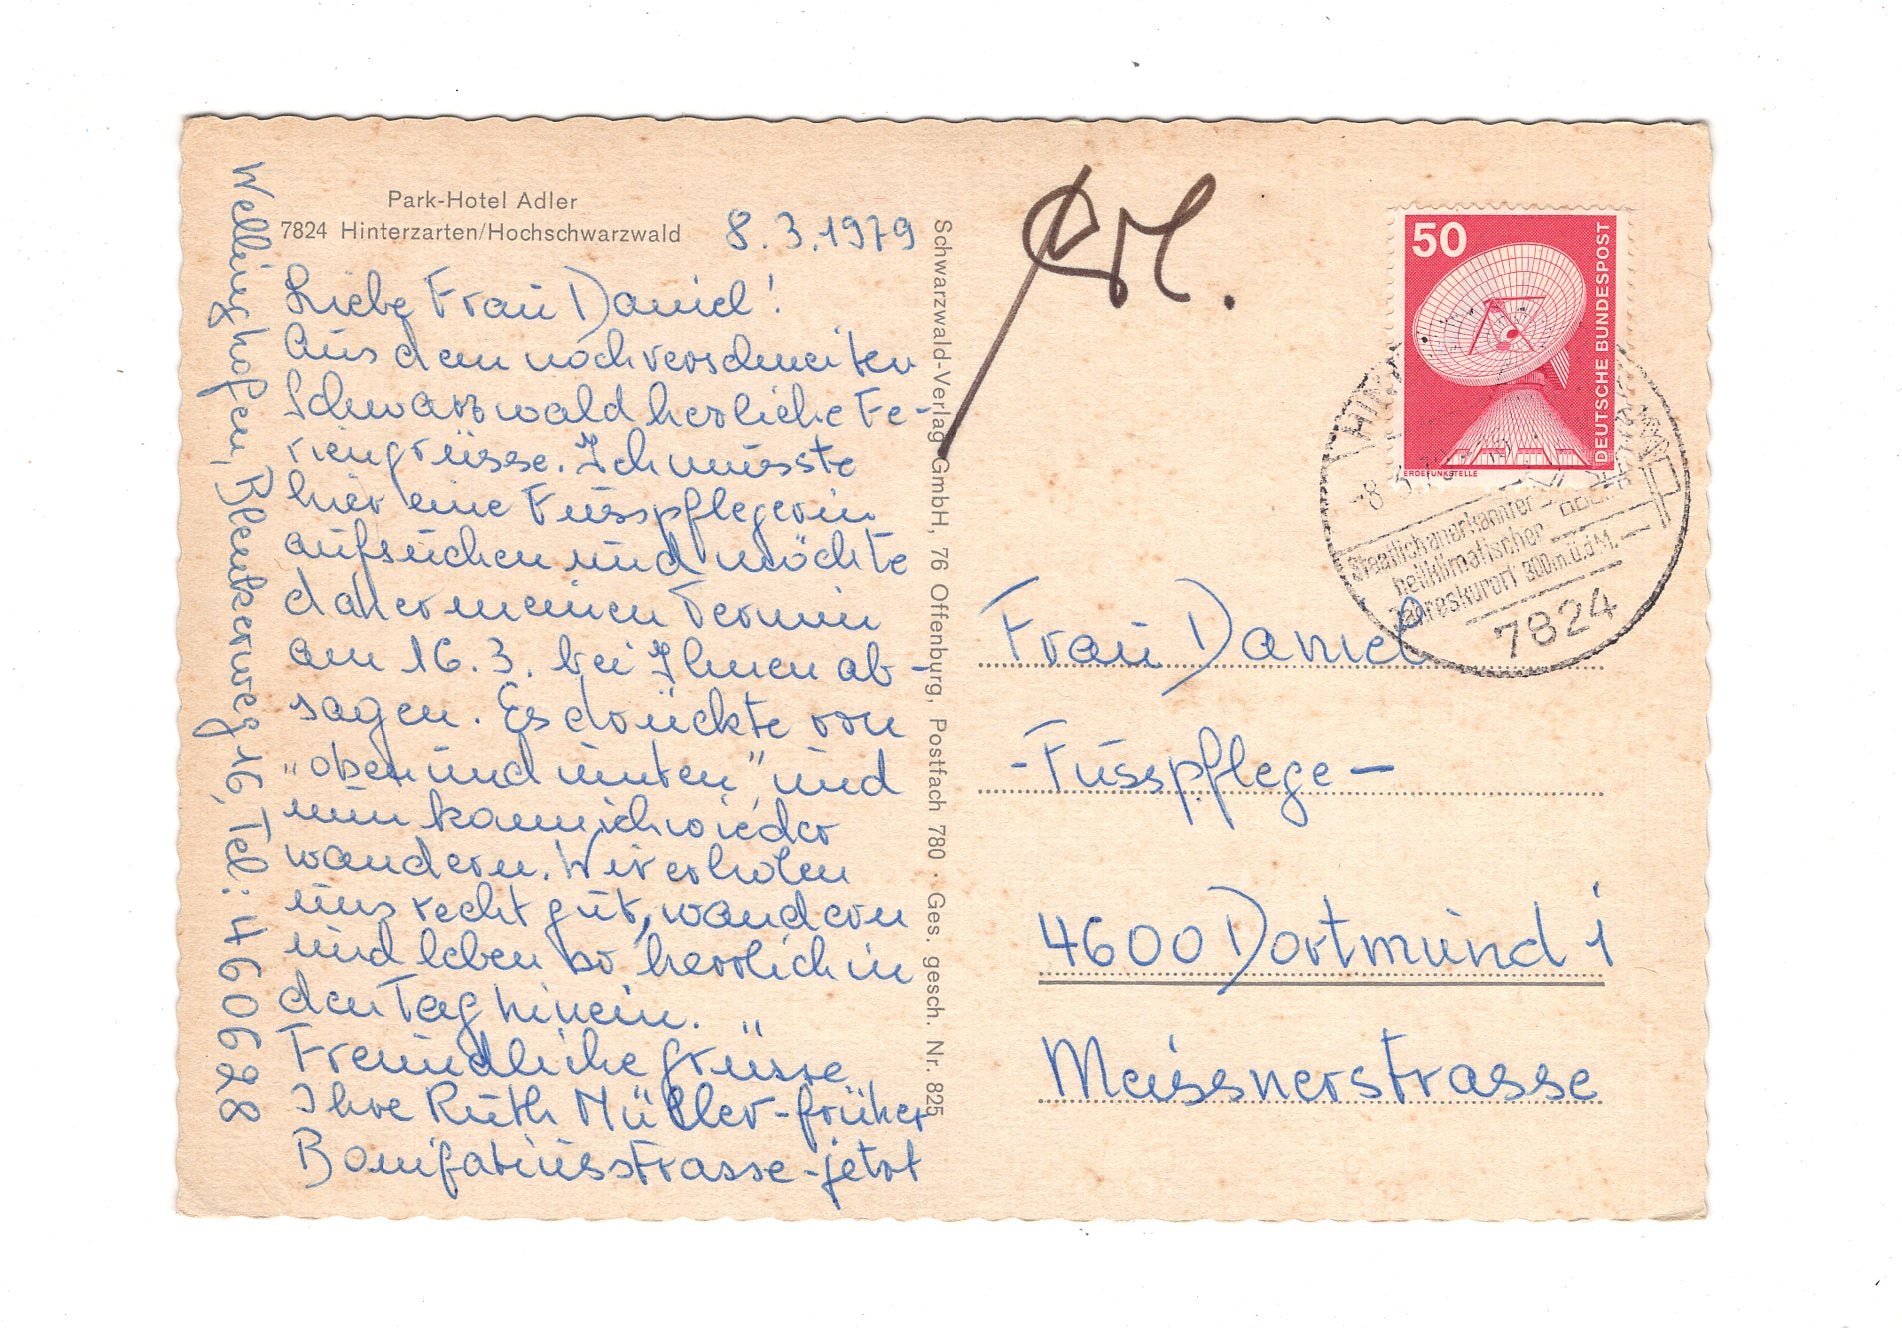 Park-Hotel Adler
7824 Hinterzarten/Hochschwarzwald
8.3.1979
Liebe Frau Daniel!
Aus dem noch verschneiten
Schwarzwald herzliche Fe-
riengrüsse. Ich musste
hier eine Fusspflegerin
aufsuchen und möchte
daher meinen Termin
am 16.3. bei Ihnen ab-
sagen. Es drückte von
„oben und unten" und
nun kann ich wieder
wandern. Wir erholen
uns recht gut, wandern
und leben so herrlich in
den Tag hinein.
Freundliche Grüsse
Ihre Ruth Müller - früher
Bonifatiusstrasse - jetzt
Wellinghofen, Blenkerweg 16, Tel: 460628
Schwarzwald-Verlag GmbH, 76 Offenburg, Postfach 780 · Ges. gesch. Nr. 825
50
DEUTSCHE BUNDESPOST
ERDEFUNKSTELLE
Staatlich anerkannter
heilklimatischer
Jahreskurort 900m.ü.d.M.
7824
Frau Daniel
- Fusspflege -
4600 Dortmund 1
Meissnerstrasse